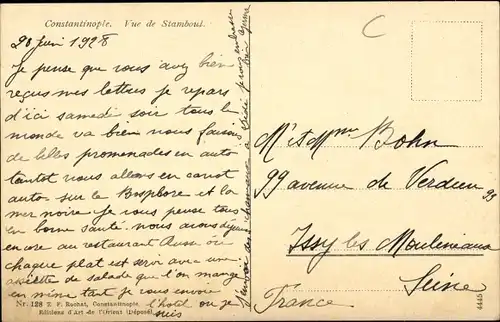 Constantinople. Vue de Stamboul.
20 juin 1928
Je pense que vous avez bien
reçus mes lettres je repars
d'ici samedi soir tous le
monde va bien nous faisons
de belles promenades en auto
tantot nous allons en canot
auto sur le Bosphore et la
mer noire je vous pense tous
en bonne santé nous avons déjeuné
encore au restaurant Russe où
chaque plat est servi avec une
assiette de salade que l'on mange
en même tant je vous envoie
l'hotel ou je
suis
Nr. 128 E. F. Rochat, Constantinople.
Editions d'Art de l'Orient (Déposé)
C
Mr et Mme Bohn
99 avenue de Verdun 99
Issy les Moulineaux
Seine
France
4445